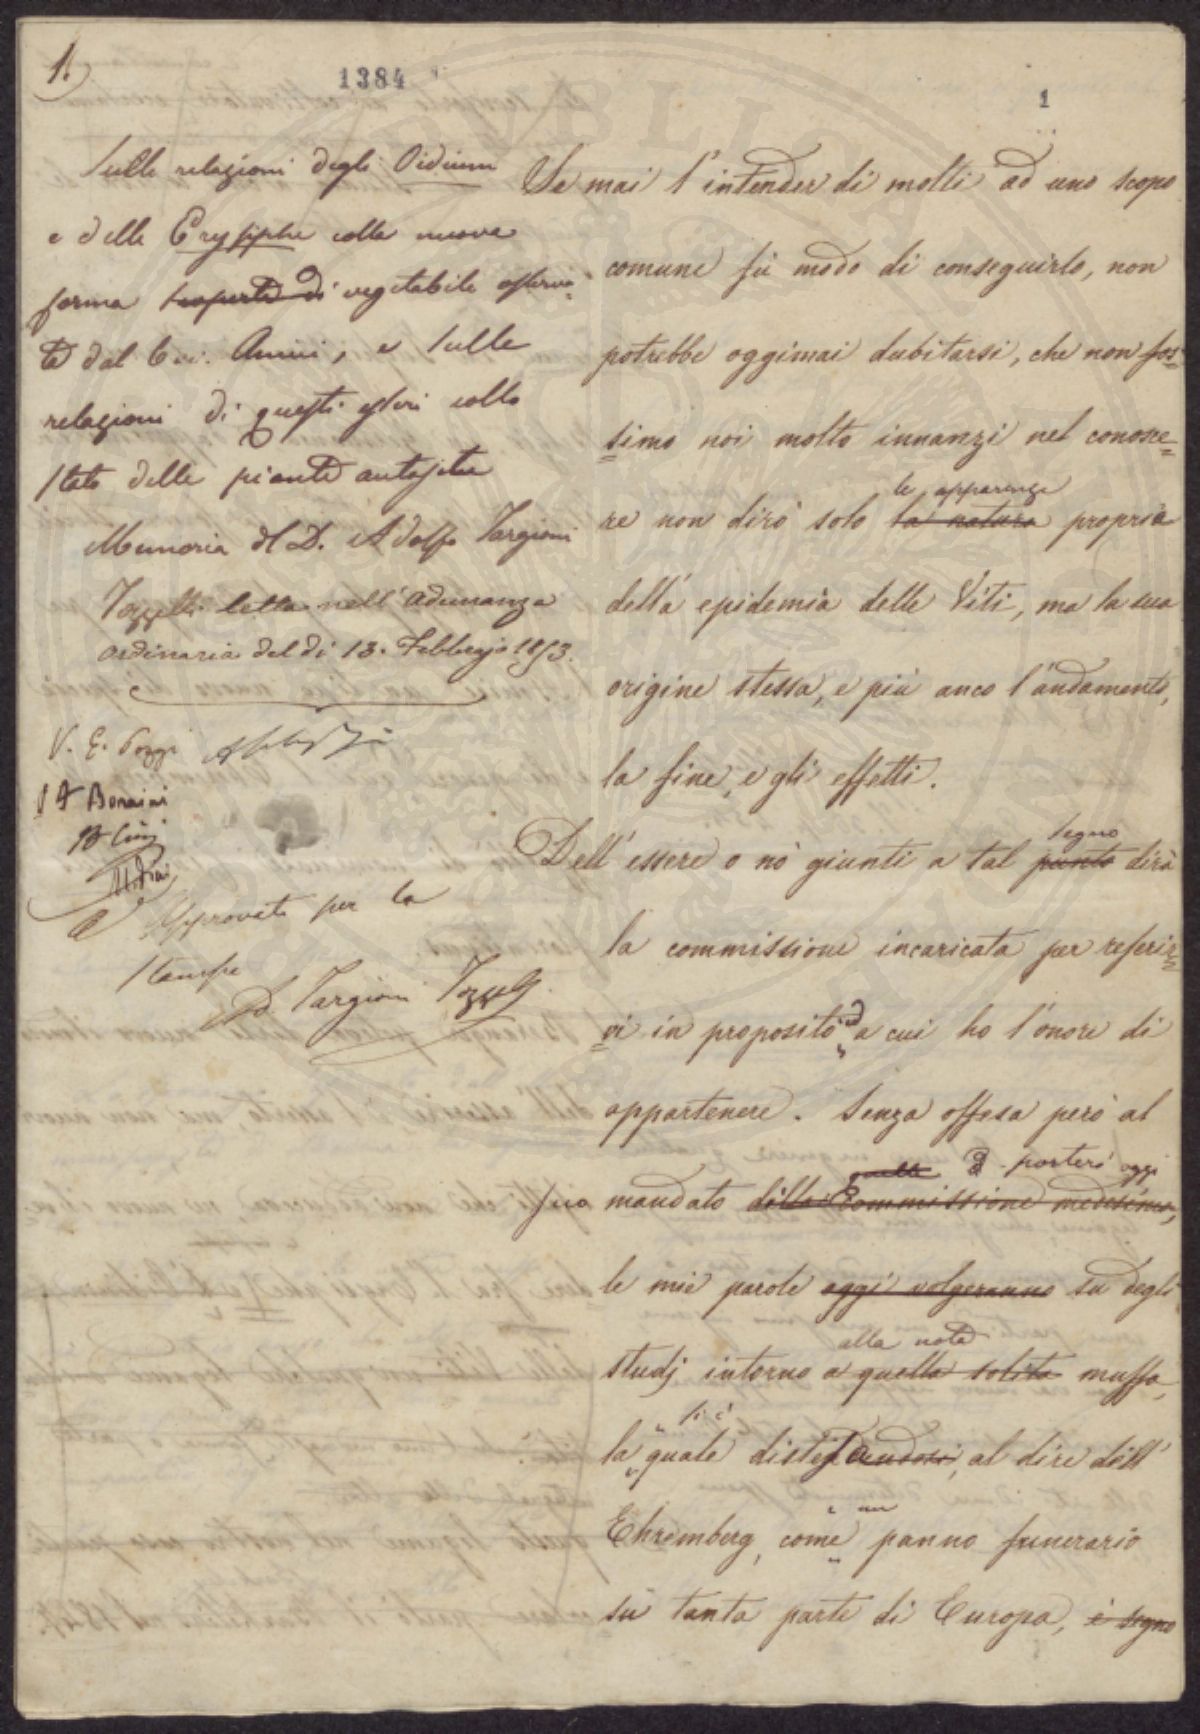 1.
1384
1
Sulle relazioni degli Oidium
e delle Erysiphe colla nuova
forma scoperta di vegetabile osserva=
ta dal Cav. Amici, e sulle
relazioni di questi esseri collo
stato delle piante autosite
Memoria del D. Adolfo Targioni
Tozzetti letta nell'adunanza
ordinaria del dì 13. Febbrajo 1853.
V. E. Pozzi
Bonaini
Approvato per la
stampa
Ad. Targioni Tozzetti
Se mai l'intender di molti ad uno scopo
comune fù modo di conseguirlo, non
potrebbe oggimai dubitarsi, che non fos=
simo noi molto innanzi nel conosce=
le apparenze
re non dirò solo la natura propria
della epidemia delle Viti, ma la sua
origine stessa, e più anco l'andamento,
la fine, e gli effetti.
segno
Dell'essere o nò giunti a tal punto dirà
la commissione incaricata per referir=
vi in proposito a cui ho l'onore di
appartenere. Senza offesa però al
quella porterò oggi
suo mandato della Commissione medesima,
le mie parole oggi volgeranno su degli
alla nota
studj intorno a quella solita muffa,
si è
la quale distesa al dire dell'
e un
Ehremberg, come panno funerario
sù tanta parte di Europa, è segno